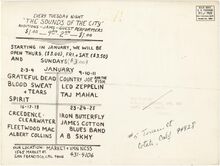 EVERY TUESDAY NIGHT
"THE SOUNDS OF THE CITY"
AUDITIONS - JAMS - GUEST PERFORMERS
STARTING IN JANUARY, WE WILL BE
OPEN THURS. ($3.00), FRI + SAT. ($3.50)
AND SUNDAYS ($3.00)
JANUARY
2-3-4
GRATEFUL DEAD
BLOOD SWEAT
+ TEARS
SPIRIT
9-10-11
COUNTRY JOE AND THE FISH
LED ZEPPELIN
TAJ MAHAL
16-17-18
CREEDENCE
CLEARWATER
FLEETWOOD MAC
ALBERT COLLINS
23-24-25
IRON BUTTERFLY
JAMES COTTON
BLUES BAND
A B SKHY
OUR LOCATION: MARKET + VAN NESS
1545 MARKET ST.
SAN FRANCISCO
431-9106
Calif